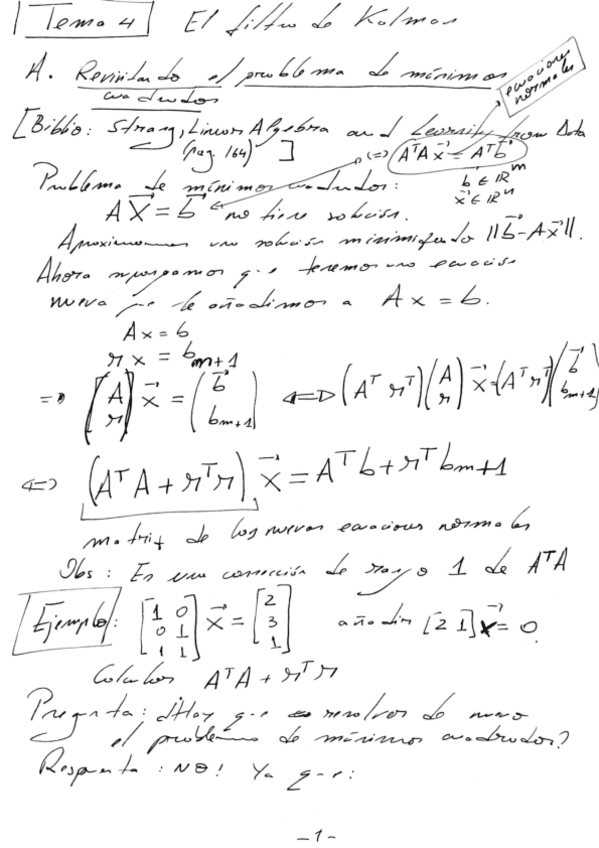 Tema 4 El filtro de Kalman
A. Revisitando el problema de mínimos
cuadrados
ecuaciones
normales
[Biblio: Strang, Linear Algebra and Learning from Data
(pag 164) ] (⇔) AᵀA x⃗ = Aᵀb⃗
Problema de mínimos cuadrados: b⃗ ∈ ℝᵐ
A x⃗ = b⃗ no tiene solución. x⃗ ∈ ℝⁿ
Aproximamos una solución minimizando ||b⃗ - Ax⃗||.
Ahora supongamos que tenemos una ecuación
nueva que le añadimos a Ax = b.
Ax = b
r x = bₘ₊₁
⇒ (A r) x⃗ = (b⃗ bₘ₊₁) ⇔ (Aᵀ rᵀ)(A r) x⃗ = (Aᵀ rᵀ)(b⃗ bₘ₊₁)
⇔ (AᵀA + rᵀr) x⃗ = Aᵀb + rᵀbₘ₊₁
matriz de las nuevas ecuaciones normales
Obs: Es una corrección de rango 1 de AᵀA
Ejemplo: [1 0 0 1 1 1] x⃗ = [2 3 1] añadir [2 1] x⃗ = 0
Calcular AᵀA + rᵀr
Pregunta: ¿Hay que resolver de nuevo
el problema de mínimos cuadrados?
Respuesta: NO! Ya que:
-1-